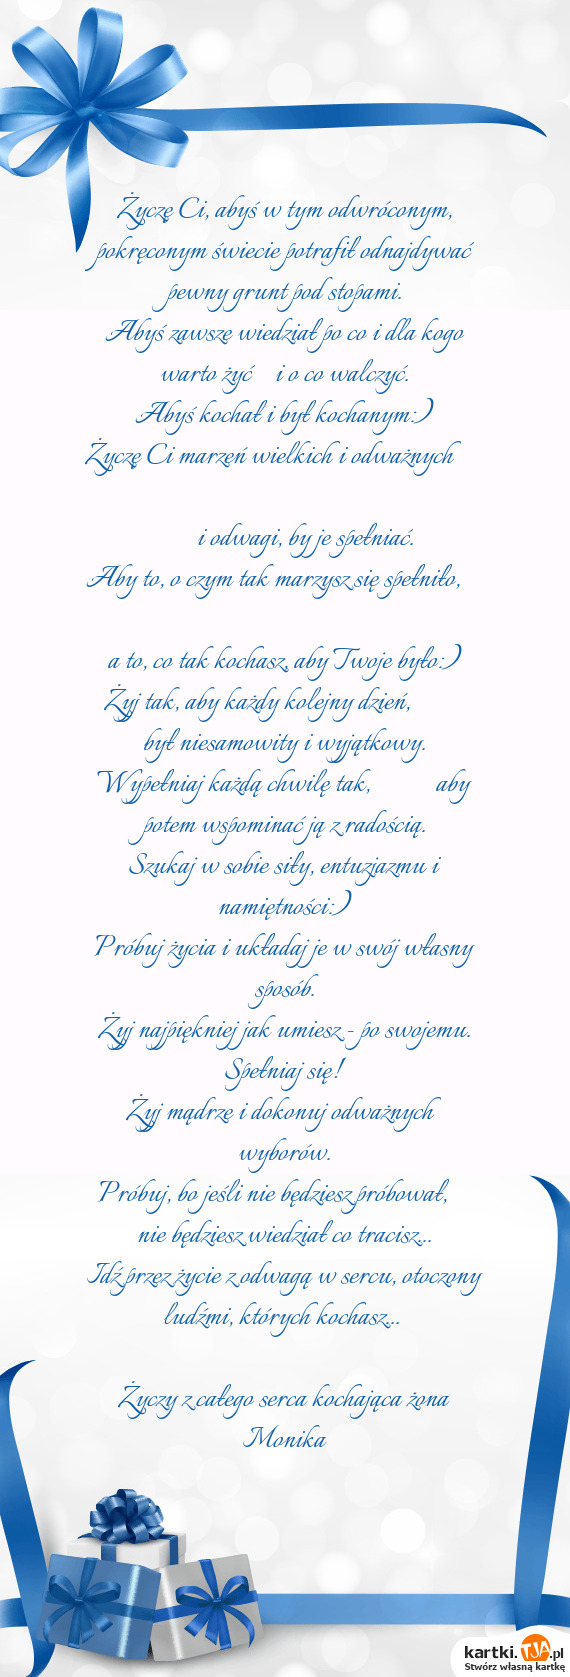 Życzę Ci, abyś w tym odwróconym,
pokręconym świecie potrafił odnajdywać
pewny grunt pod stopami.
Abyś zawsze wiedział po co i dla kogo
warto żyć i o co walczyć.
Abyś kochał i był kochanym:)
Życzę Ci marzeń wielkich i odważnych
i odwagi, by je spełniać.
Aby to, o czym tak marzysz się spełniło,
a to, co tak kochasz, aby Twoje było:)
Żyj tak, aby każdy kolejny dzień,
był niesamowity i wyjątkowy.
Wypełniaj każdą chwilę tak, aby
potem wspominać ją z radością.
Szukaj w sobie siły, entuzjazmu i
namiętności:)
Próbuj życia i układaj je w swój własny
sposób.
Żyj najpiękniej jak umiesz - po swojemu.
Spełniaj się!
Żyj mądrze i dokonuj odważnych
wyborów.
Próbuj, bo jeśli nie będziesz próbował,
nie będziesz wiedział co tracisz...
Idź przez życie z odwagą w sercu, otoczony
ludźmi, których kochasz...
Życzy z całego serca kochająca żona
Monika
kartki.TJA.pl
Stwórz własną kartkę